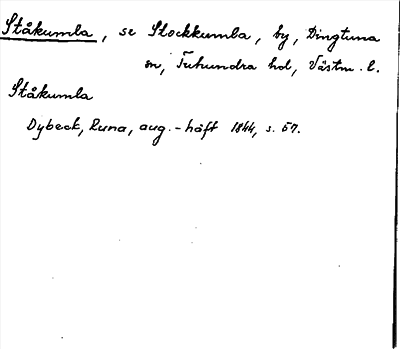 Ståkumla, se Stockkumba, by, Dingtuna
sn, Tuhundra hd, Västm. l.
Ståkumla
Dybeck, Runa, aug.-häft 1844, s. 57.